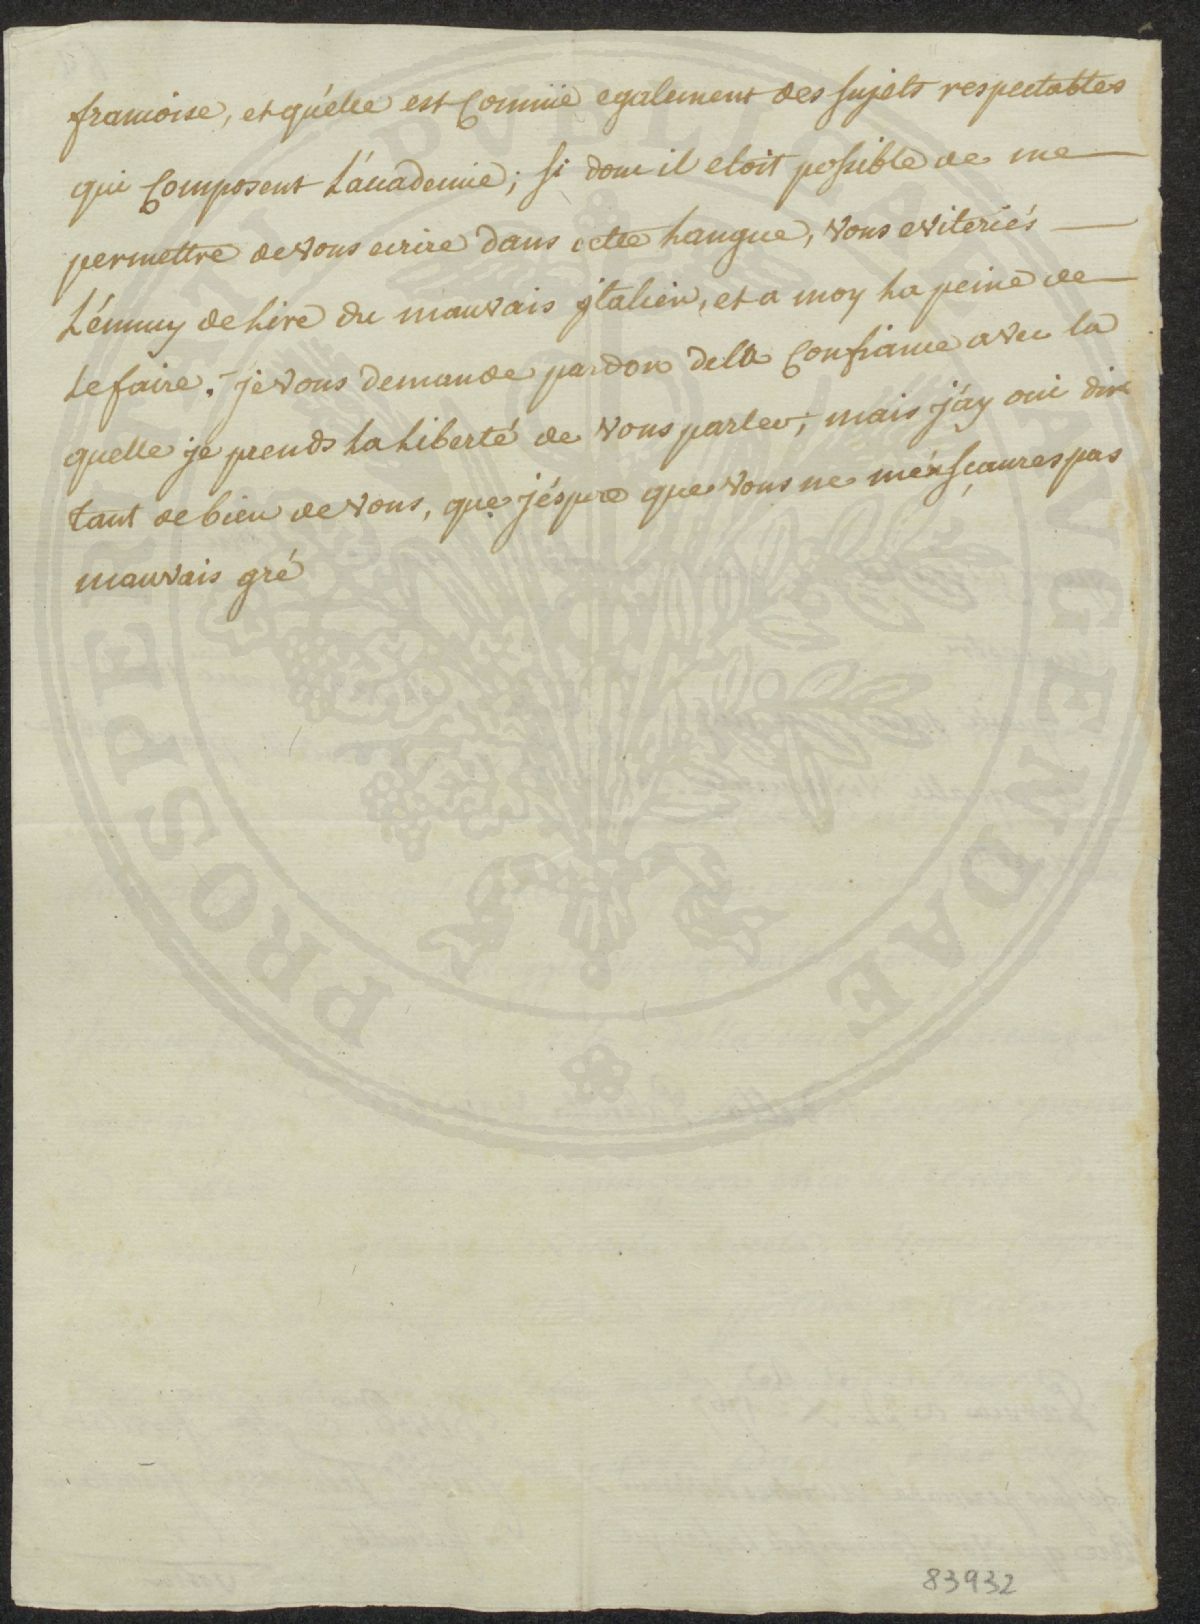 francoise, et qu'elle est Connüe egalement des sujets respectables
qui Composent L'accademie; si donc il etoit possible de me
permettre de vous ecrire dans cette Langue, vous eviteriés
L'énnuy de Lire du mauvais jtalien, et a moy La peine de
Le faire. je vous demande pardon de la Confiance avec la
quelle je prends La Liberté de vous parler; mais j'ay oui dire
tant de bien de vous, que j'éspere que vous ne m'en sçaures pas
mauvais gré
PROSPERITATI PUBLICAE AUGENDAE
83932